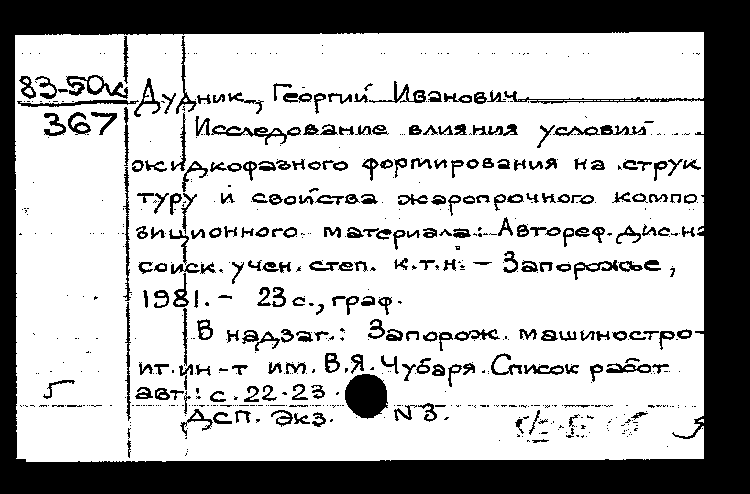 83-50к Дудник, Георгий Иванович
367 Исследование влияния условий
жидкофазного формирования на струк
туру и свойства жаропрочного компо
зиционного материала: Автореф. дис. на
соиск. учен. степ. к.т.н. - Запорожье,
1981. - 23 с., граф.
В надзаг.: Запорож. машиностро-
ит. ин-т им. В.Я. Чубаря. Список работ
авт.: с. 22-23.
ДСП. Экз. N 3.